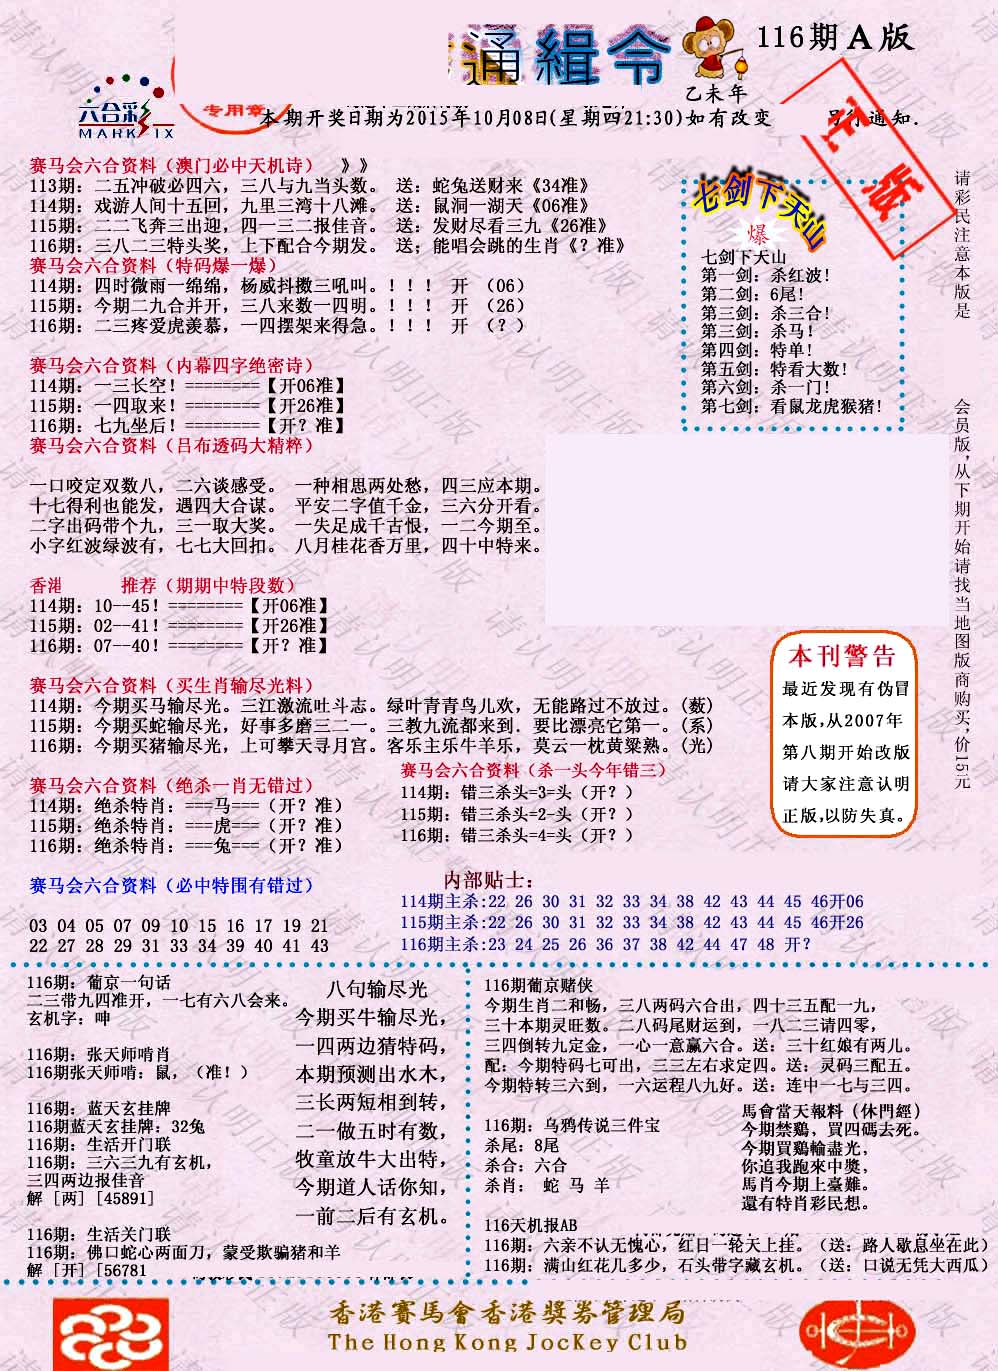 通緝令
116期A版
乙未年
六合彩
MARK SIX
专用章
正版
本期开奖日期为2015年10月08日(星期四21:30)如有改变 另行通知.
赛马会六合资料（澳门必中天机诗） 》》
113期：二五冲破必四六，三八与九当头数。 送：蛇兔送财来《34准》
114期：戏游人间十五回，九里三湾十八滩。 送：鼠洞一湖天《06准》
115期：一二飞奔三出迎，四一三二报佳音。 送：发财尽看三九《26准》
116期：三八二三特头奖，上下配合今期发。 送；能唱会跳的生肖《？准》
赛马会六合资料（特码爆一爆）
114期：四时微雨一绵绵，杨威抖擞三吼叫。！！！ 开 （06）
115期：今期二九合并开，三八来数一四明。！！！ 开 （26）
116期：二三疼爱虎羡慕，一四摆架来得急。！！！ 开 （？）
赛马会六合资料（内幕四字绝密诗）
114期：一三长空！========【开06准】
115期：一四取来！========【开26准】
116期：七九坐后！========【开？准】
赛马会六合资料（吕布透码大精粹）
一口咬定双数八，二六谈感受。 一种相思两处愁，四三应本期。
十七得利也能发，遇四大合谋。 平安二字值千金，三六分开看。
二字出码带个九，三一取大奖。 一失足成千古恨，一二今期至。
小字红波绿波有，七七大回扣。 八月桂花香万里，四十中特来。
香港 推荐（期期中特段数）
114期：10--45！========【开06准】
115期：02--41！========【开26准】
116期：07--40！========【开？准】
赛马会六合资料（买生肖输尽光料）
114期：今期买马输尽光。三江激流吐斗志。绿叶青青鸟儿欢，无能路过不放过。(薮)
115期：今期买蛇输尽光，好事多磨三二一。三教九流都来到．要比漂亮它第一。(系)
116期：今期买猪输尽光，上可攀天寻月宫。客乐主乐牛羊乐，莫云一枕黄粱熟。(光)
赛马会六合资料（绝杀一肖无错过）
114期：绝杀特肖：===马===（开？准）
115期：绝杀特肖：===虎===（开？准）
116期：绝杀特肖：===兔===（开？准）
赛马会六合资料（杀一头今年错三）
114期：错三杀头=3=头（开？）
115期：错三杀头=2-头（开？）
116期：错三杀头=4=头（开？）
赛马会六合资料（必中特围有错过）
03 04 05 07 09 10 15 16 17 19 21
22 27 28 29 31 33 34 39 40 41 43
内部贴士：
114期主杀:22 26 30 31 32 33 34 38 42 43 44 45 46开06
115期主杀:22 26 30 31 32 33 34 38 42 43 44 45 46开26
116期主杀:23 24 25 26 36 37 38 42 44 47 48 开？
七剑下天山
爆
七剑下天山
第一剑：杀红波！
第二剑：6尾！
第三剑：杀三合！
第三剑：杀马！
第四剑：特单！
第五剑：特看大数！
第六剑：杀一门！
第七剑：看鼠龙虎猴猪！
请彩民注意本版是
会员版，从下期开始请找当地图版商购买，价15元
本刊警告
最近发现有伪冒
本版,从2007年
第八期开始改版
请大家注意认明
正版,以防失真。
116期：葡京一句话
二三带九四准开，一七有六八会来。
玄机字：呻
116期：张天师啃肖
116期张天师啃：鼠，（准！）
116期：蓝天玄挂牌
116期蓝天玄挂牌：32兔
116期：生活开门联
116期：三六三九有玄机，
三四两边报佳音
解 [两] [45891]
116期：生活关门联
116期：佛口蛇心两面刀，蒙受欺骗猪和羊
解 [开] [56781
八句输尽光
今期买牛输尽光，
一四两边猜特码，
本期预测出水木，
三长两短相到转，
二一做五时有数，
牧童放牛大出特，
今期道人话你知，
一前二后有玄机。
116期葡京赌侠
今期生肖二和畅，三八两码六合出，四十三五配一九，
三十本期灵旺数。二八码尾财运到，一八二三请四零，
三四倒转九定金，一心一意赢六合。送：三十红娘有两儿。
配：今期特码七可出，三三左右求定四。送：灵码三配五。
今期特转三六到，一六运程八九好。送：连中一七与三四。
116期：乌鸦传说三件宝
杀尾：8尾
杀合：六合
杀肖： 蛇 马 羊
馬會當天報料（休門經）
今期禁鷄，買四碼去死。
今期買鷄輸盡光，
你追我跑來中獎，
馬肖今期上臺難。
還有特肖彩民想。
116天机报AB
116期：六亲不认无愧心，红日一轮天上挂。（送：路人歇息坐在此）
116期：满山红花儿多少，石头带字藏玄机。（送：口说无凭大西瓜）
香港賽馬會香港獎券管理局
The Hong Kong JocKey Club
请认明正版